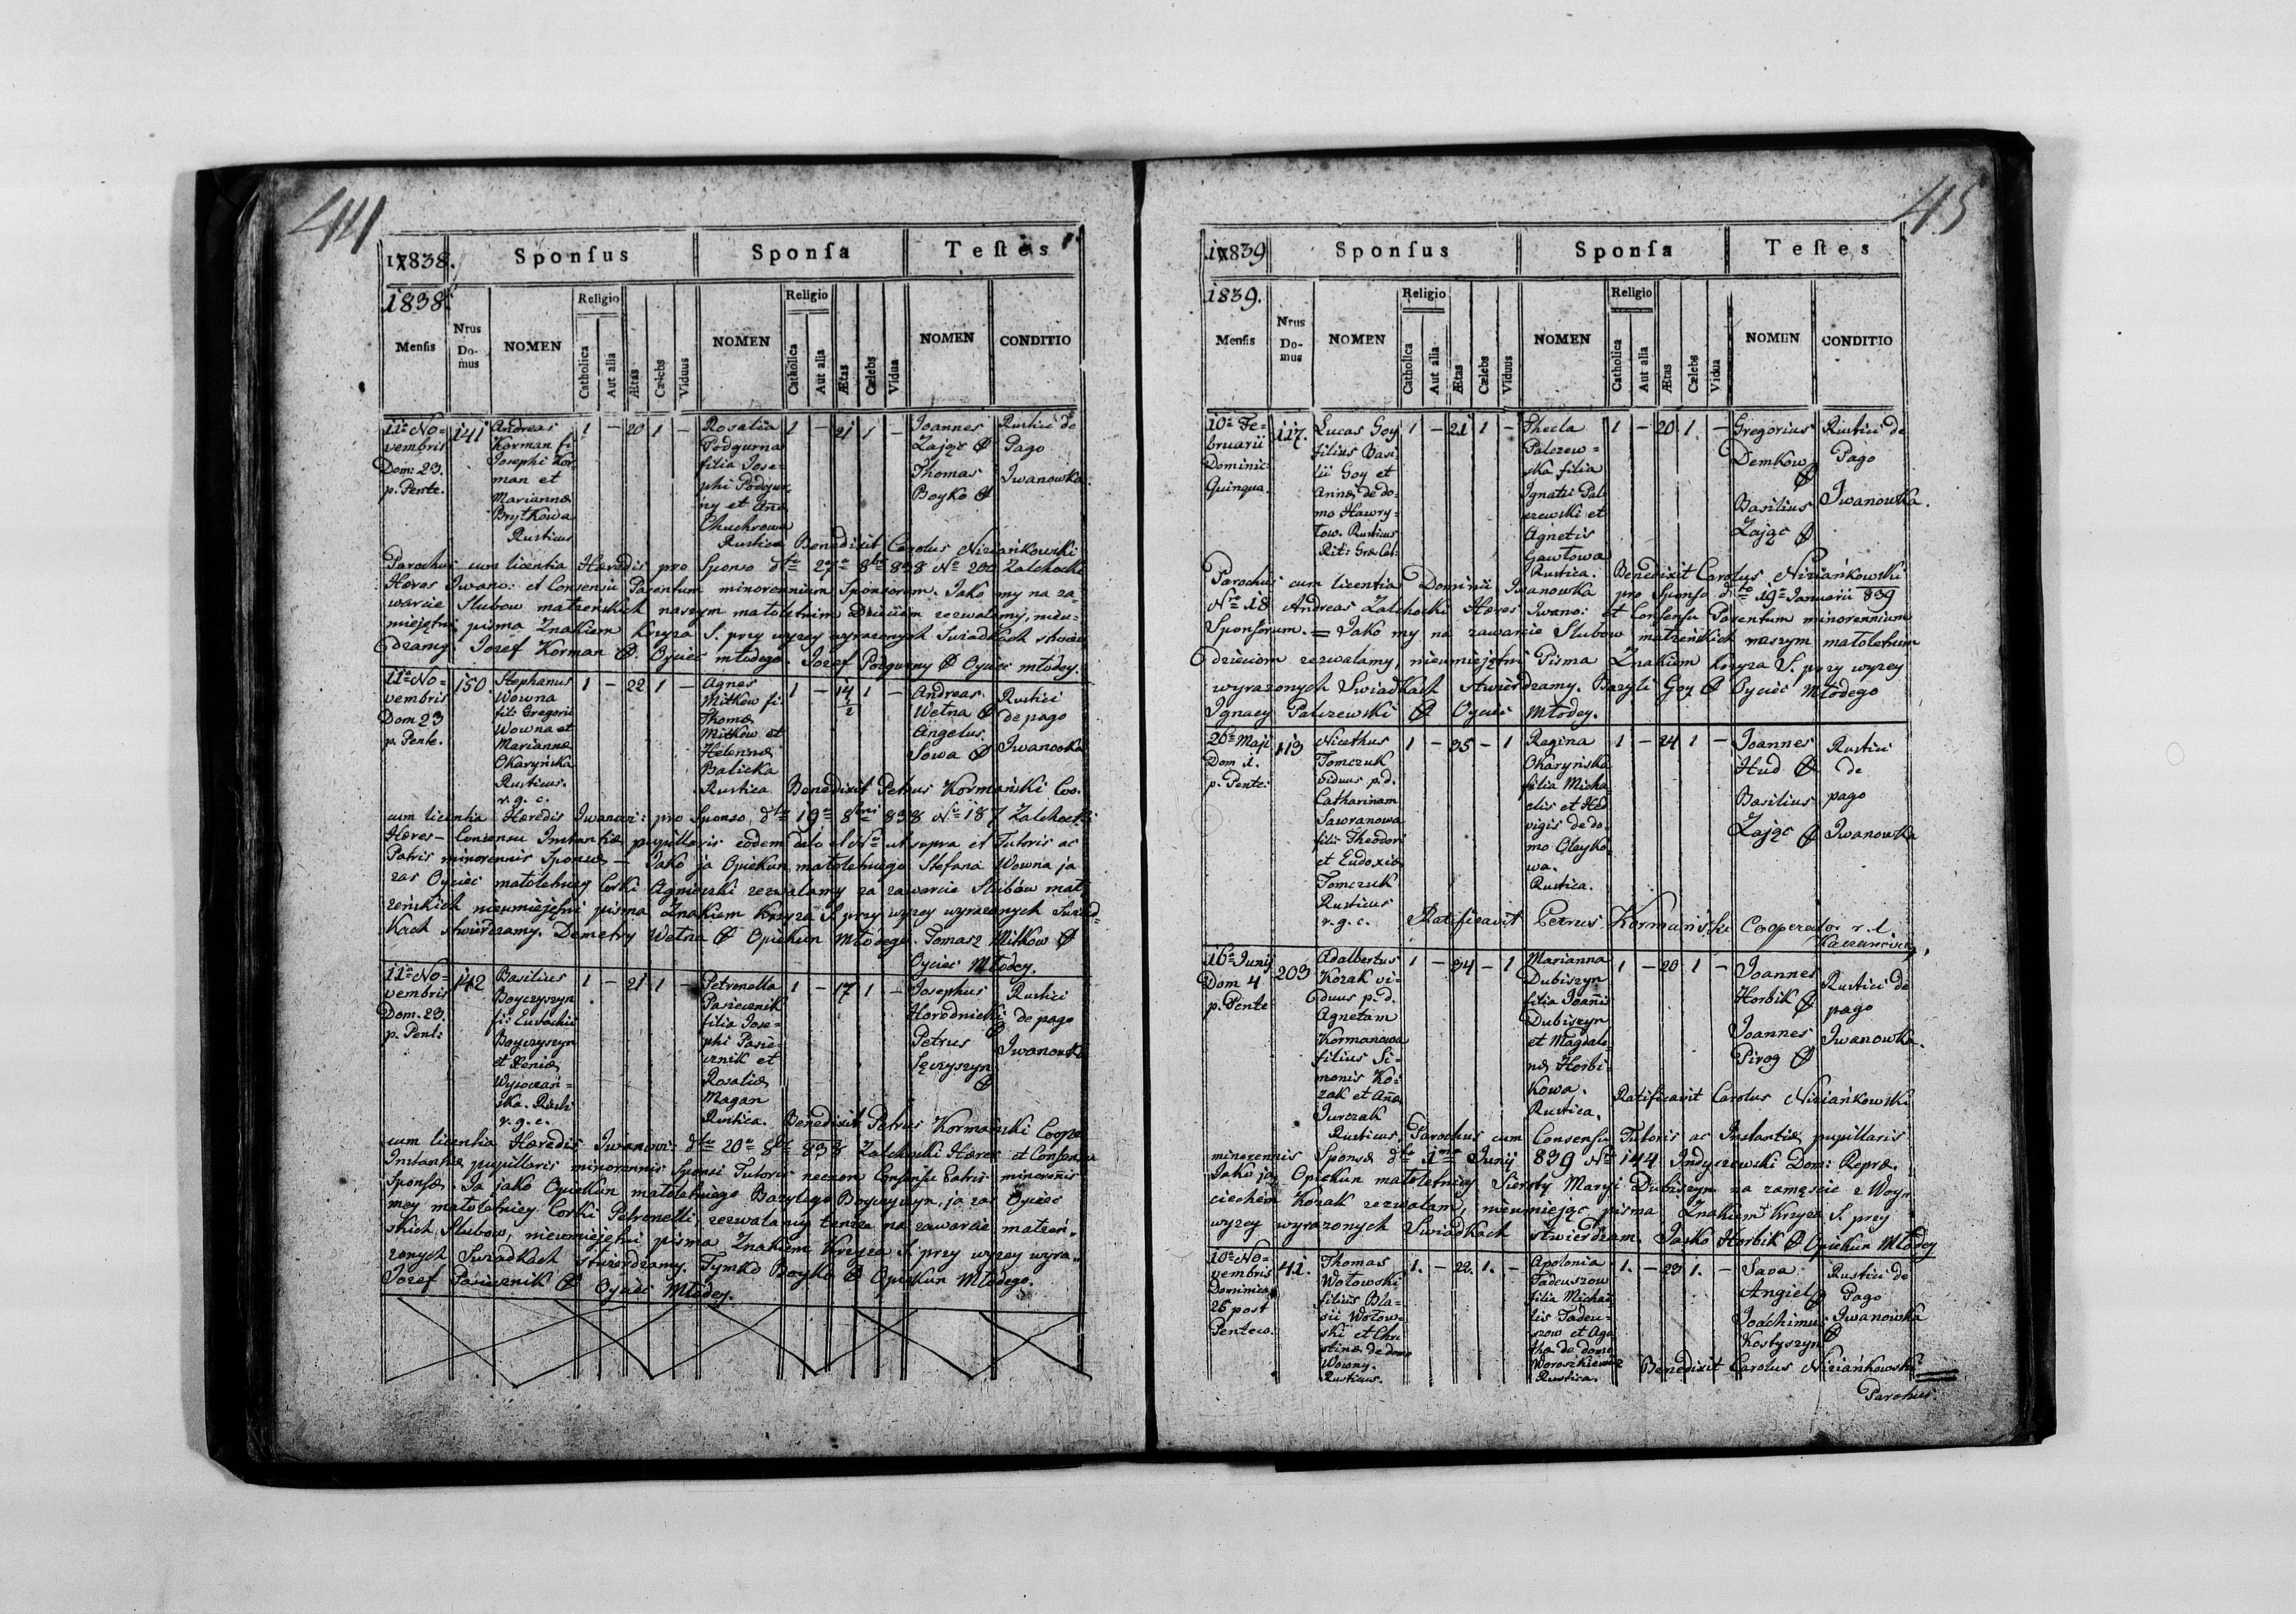 44
17838. Sponſus Sponſa Teſtes
1838. Religio Religio
Menſis Nrus Do- mus NOMEN Catholica Aut alia Ætas Cælebs Viduus NOMEN Catholica Aut alia Ætas Cælebs Vidua NOMEN CONDITIO
11a No=
vembris
Dom: 23.
p. Pente.
141
Andreas
Korman fi:
Josephi Kor
man et
Mariannæ
Brytkowa
Rusticus
1 – 20 1 –
Rosalia
Podgurna
filia Jose=
phi Podgur
ny et Annæ
Chuchrowa
Rustica
1 – 21 1 –
Joannes
Zając
Thomas
Boyko
Rustici de
Pago
Iwanowka.
Benedixit Carolus Niziańkowski
Parochus cum licentia Hæredis pro Sponso dto 27a 8bris 838 No 200 Zalchocki
Hæres Iwano: et Consensu Parentum minorennium Sponsorum. Jako my na za=
warcie Slubow matzenskich naszym matoletnim Dzieciom zezwalamy, nieu=
miejętni pisma Znakiem Krzyza S. przy wyzey wyrazonych Swiadkach stwier
dzamy. Jozef Korman Oyciec młodego. Jozef Podgurny Oyciec młodey.
11a No=
vembris
Dom 23
p. Pente.
150
Stephanus
Wowna
fili Gregorii
Wowna et
Mariannæ
Okaryńska
Rusticus.
r. g. c.
1 – 22 1 –
Agnes
Mitkow fi:
Thomæ
Mitkow et
Helennæ
Balicka
Rustica
1 – 14 1/2 1 –
Andreas
Wetna
Angelus
Sowa
Rustici
de pago
Iwanowka
Benedixit Petrus Kormański Coo.
cum licentia Hæredis Iwanow: pro Sponso dto 19a 8bris 838 No 187 Zalchocki
Hæres – Consensu Instantiæ pupillaris eodem dato et No ut supra et Tutoris ac
Patris minorennis Sponsæ – Jako ja Opiekun matoletniego Stefana Wowna ja
zas Oyciec matoletniey Corki Agnieszki zezwalamy za zawarcie Slubów mat
zeńskich nieumiejętni pisma Znakiem Krzyza S. przy wyzey wyrazonych Swiad=
kach stwierdzamy. Demetry Wetna Opiekun Młodego. Tomasz Mitkow
Oyciec Młodey.
11a No=
vembris
Dom. 23.
p. Pent:
142
Basilius
Boyczyszyn
fi: Eustachii
Boyczyszyn
et Xeniæ
Wysoczań=
ska. Rusti
r. g. c.
1 – 21 1 –
Petronella
Pasiecznik
filia Jose=
phi Pasie=
cznik et
Rosaliæ
Magan
Rustica.
1 – 17 1 –
Josephus
Horodnicki
Petrus
Sęczyszyn
Rustici
de pago
Iwanowka
Benedixit Petrus Kormański Coope.
cum licentia Hæredis Iwanow: dto 20a 8bris 838 Zalchocki Hæres et Consensu
Instantiæ pupillaris minorennis Sponsi Tutoris necnon Consensu Patris minorenis
Sponsæ. Ja jako Opiekun matoletniego Bazylego Boyczyszyn, ja zas Oyciec
mey matoletniey Corki Petronelli, zezwalamy tymze na zawarcie matzeń.
skich Slubow, nieumiejętni pisma Znakiem Krzyza S. przy wyzey wyra.
zonych Swiadkach stwierdzamy. Tymko Boyko Opiekun Młodego.
Jozef Pasiecznik Oyciec Młodey.
45
17839 Sponſus Sponſa Teſtes
1839. Religio Religio
Menſis Nrus Do- mus NOMEN Catholica Aut alia Ætas Cælebs Viduus NOMEN Catholica Aut alia Ætas Cælebs Vidua NOMEN CONDITIO
10a Fe=
bruarii
Dominic:
Quinqua.
117.
Lucas Goy
filius Basi
lii Goy et
Annæ de do=
mo Hawry=
tow. Rusticus
Riti: Græ: Cat:
1 – 21 1 –
Thecla
Palczew=
ska filia
Ignatii Pal
czewski et
Agnetis
Gawtowa
Rustica.
1 – 20 1. –
Gregorius
Demkow
Basilius
Zając
Rustici de
Pago
Iwanowka.
Benedixit Carolus Niziańkowski
Parochus cum licentia Dominii Iwanowka pro Sponso dto 19a Januarii 839
No 18 Andreas Zalchocki Hæres Iwano: et Consensu Parentum minorennium
Sponsorum. = Jako my na zawarcie Slubow matzeńskich naszym matoletnim
dzieciom zezwalamy, nieumiejętni Pisma Znakiem Krzyza S. przy wyzey
wyrazonych Swiadkach stwierdzamy. Bazyli Goy Oyciec Młodego
Ignacy Palczewski Oyciec Młodey.
26a Maji
Dom 1.
p. Pente:
113
Nicethus
Tomczuk
viduus p. d.
Catharinam
Saworanowa
filii Theodori
et Eudoxiæ
Tomczuk
Rusticus
r. g. c.
1 – 35 – 1
Regina
Okaryńska
filia Micha=
elis et Hed
vigis de do=
mo Oleyko=
wa.
Rustica.
1 – 24 1 –
Joannes
Hud
Basilius
Zając
Rustici
de
pago
Iwanowka
Ratificavit Petrus Kormański Cooperator r. l.
16a Junij
Dom 4
p. Pente
203
Adalbertus
Kozak vi=
duus p. d.
Agnetam
Kormanowa
filius Si=
monis Ko=
zak et Annæ
Jurczak
Rusticus.
1 – 34 – 1
Marianna
Dubiszyn
filia Joanis
Dubiszyn
et Magdale
næ Horbi=
kowa.
Rustica.
1 – 20 1 –
Joannes
Horbik
Joannes
Pirog
Rustici de
pago
Iwanowka.
Ratificavit Carolus Niziańkowski
Parochus cum Consensu Tutoris ac Instantiæ pupillaris
minorennis Sponsæ dto 1ma Junij 839 No 144 Indyczewski Dom: Repræ.
Jako ja Opiekun matoletniey Sieroty Maryi Dubiszyn na zamęscie z Woy=
ciechem Kozak zezwalam, nieumiejąc pisma Znakiem Krzyza S. przy
wyzey wyrazonych Swiadkach stwierdzam. Jasko Horbik Opiekun Młodey
10a No=
vembris
Dominica
25 post
Penteco.
41.
Thomas
Wotowski
filius Bla=
sii Wotow=
ski et Chri
stinæ de domo
Wowny.
Rusticus.
1. – 22. 1. –
Apolonia
Tadeuszow
filia Michae
lis Tadeu=
szow et Aga
thæ de domo
Woroszkiewicz
Rustica.
1. – 23 1. –
Sava
Angiel
Joachimus
Kostyszyn
Rustici de
Pago
Iwanowka
Benedixit Carolus Niziańkowski
Parohus.